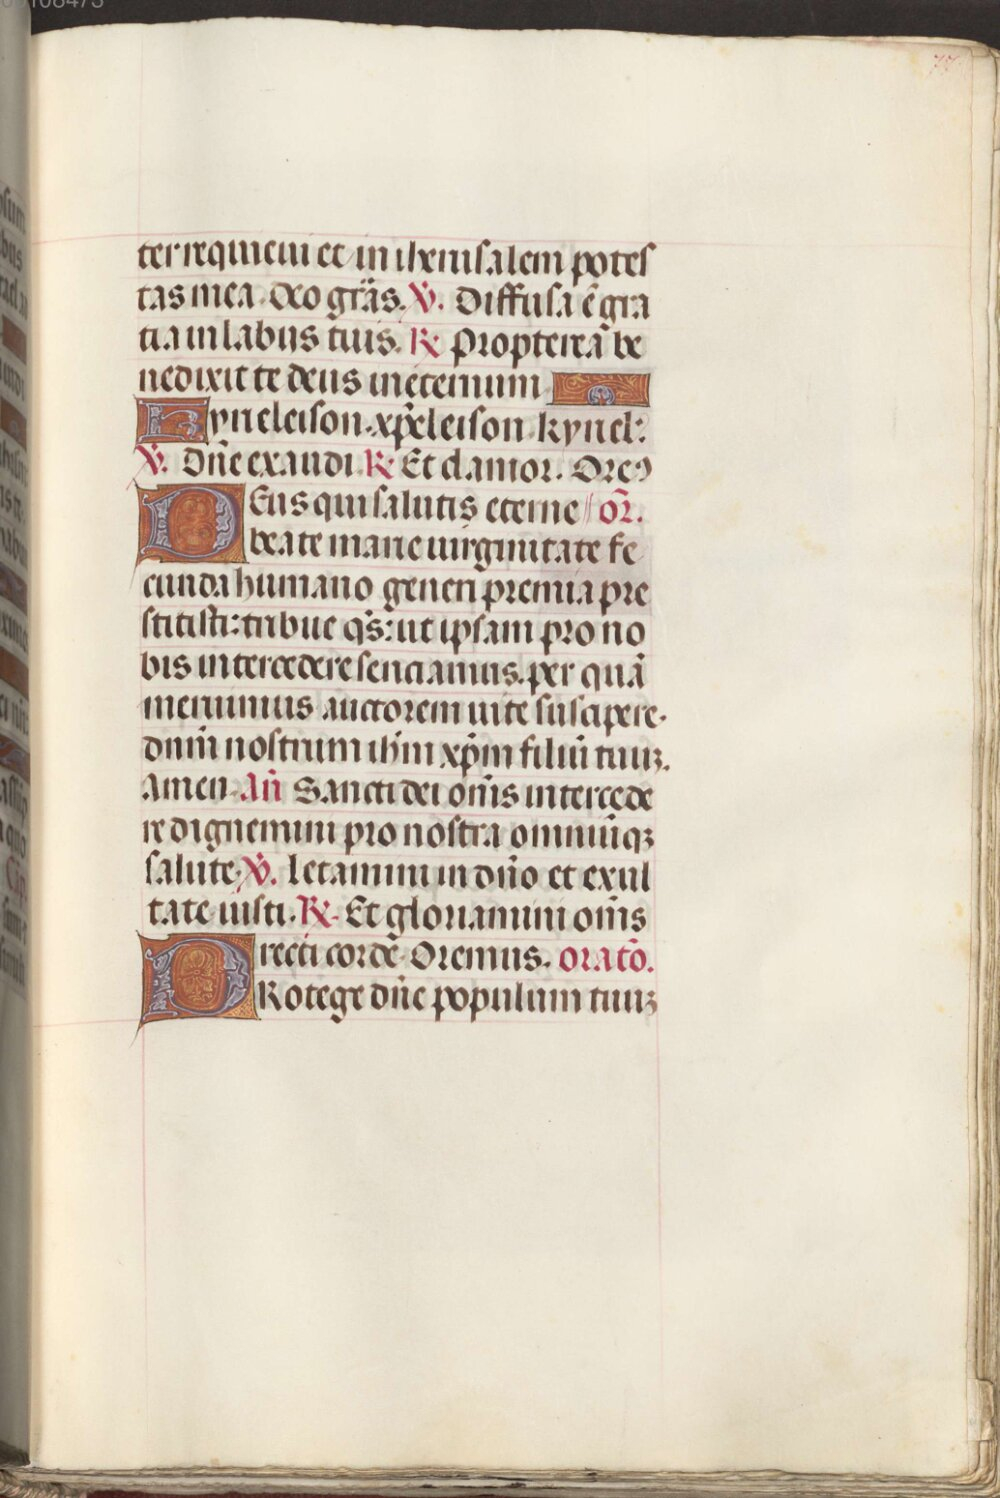 77
ter requieui et in iherusalem potes
tas mea. Deo gr̃as. V̄. Diffusa ē gra
tia in labiis tuis. R̄ Propterea be
nedixit te deus in eternum
Kyrieleison. xp̃eleison. kyriel:
V̄. Dñe exaudi R̄ Et clamor. Oreꝰ
DEus qui salutis eterne or̃.
beate marie uirginitate fe
cunda humano generi premia pre
stitisti: tribue q̃s: ut ipsam pro no
bis intercedere senciamus. per quã
meruimus auctorem uite suscipere.
dnm̃ nostrum ihm̃ xp̃m filiũ tuuꝫ.
Amen. Añ Sancti dei om̃s intercede
re dignemini pro nostra omniũqꝫ
salute. V̄. letamini in dño et exul
tate iusti. R̄. Et gloriamini om̃s
recti corde. Oremus. oratõ.
PRotege dñe populum tuuꝫ